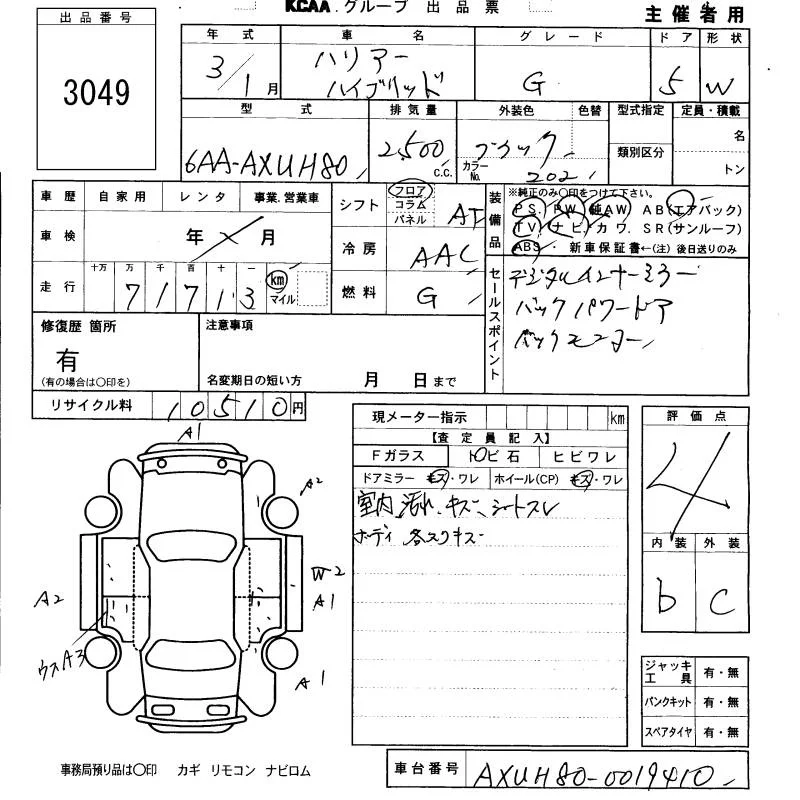 KCAA.グループ 出品票
主催者用
出品番号
3049
年式 車名 グレード ドア 形状
3/1月 ハリアー ハイブリッド G 5 W
型式 排気量 外装色 色替 型式指定 定員・積載
6AA-AXUH80 2,500 C.C. ブラック カラーNo. 202 類別区分 名 トン
車歴 自家用 レンタ 事業.営業車
シフト フロア コラム パネル AT
装備品 ※純正のみ〇印をつけて下さい。
PS. PW 純AW AB(エアバック)
TV ナビ カワ. SR(サンルーフ)
ABS・ 新車保証書←(注) 後日送りのみ
車検 年 月
冷房 AAC
走行 十万 万 千 百 十 一
71713 km マイル
燃料 G
セールスポイント
デジタルインナーミラー
バックパワードア
バックモニター
修復歴 箇所
有
(有の場合は〇印を)
注意事項
名変期日の短い方 月 日まで
リサイクル料 10510円
現メーター指示 km
【査定員記入】
Fガラス トビ石 ヒビワレ
ドアミラー キズ・ワレ ホイール(CP) キズ・ワレ
室内 汚れ、キズ、シートスレ
ボディ 各スリキズ
評価点
4
内装 外装
b C
A1
A2
W2
A1
A2
ウスA3
A1
ジャッキ工具 有・無
パンクキット 有・無
スペアタイヤ 有・無
事務局預り品は〇印 カギ リモコン ナビロム
車台番号 AXUH80-0019410